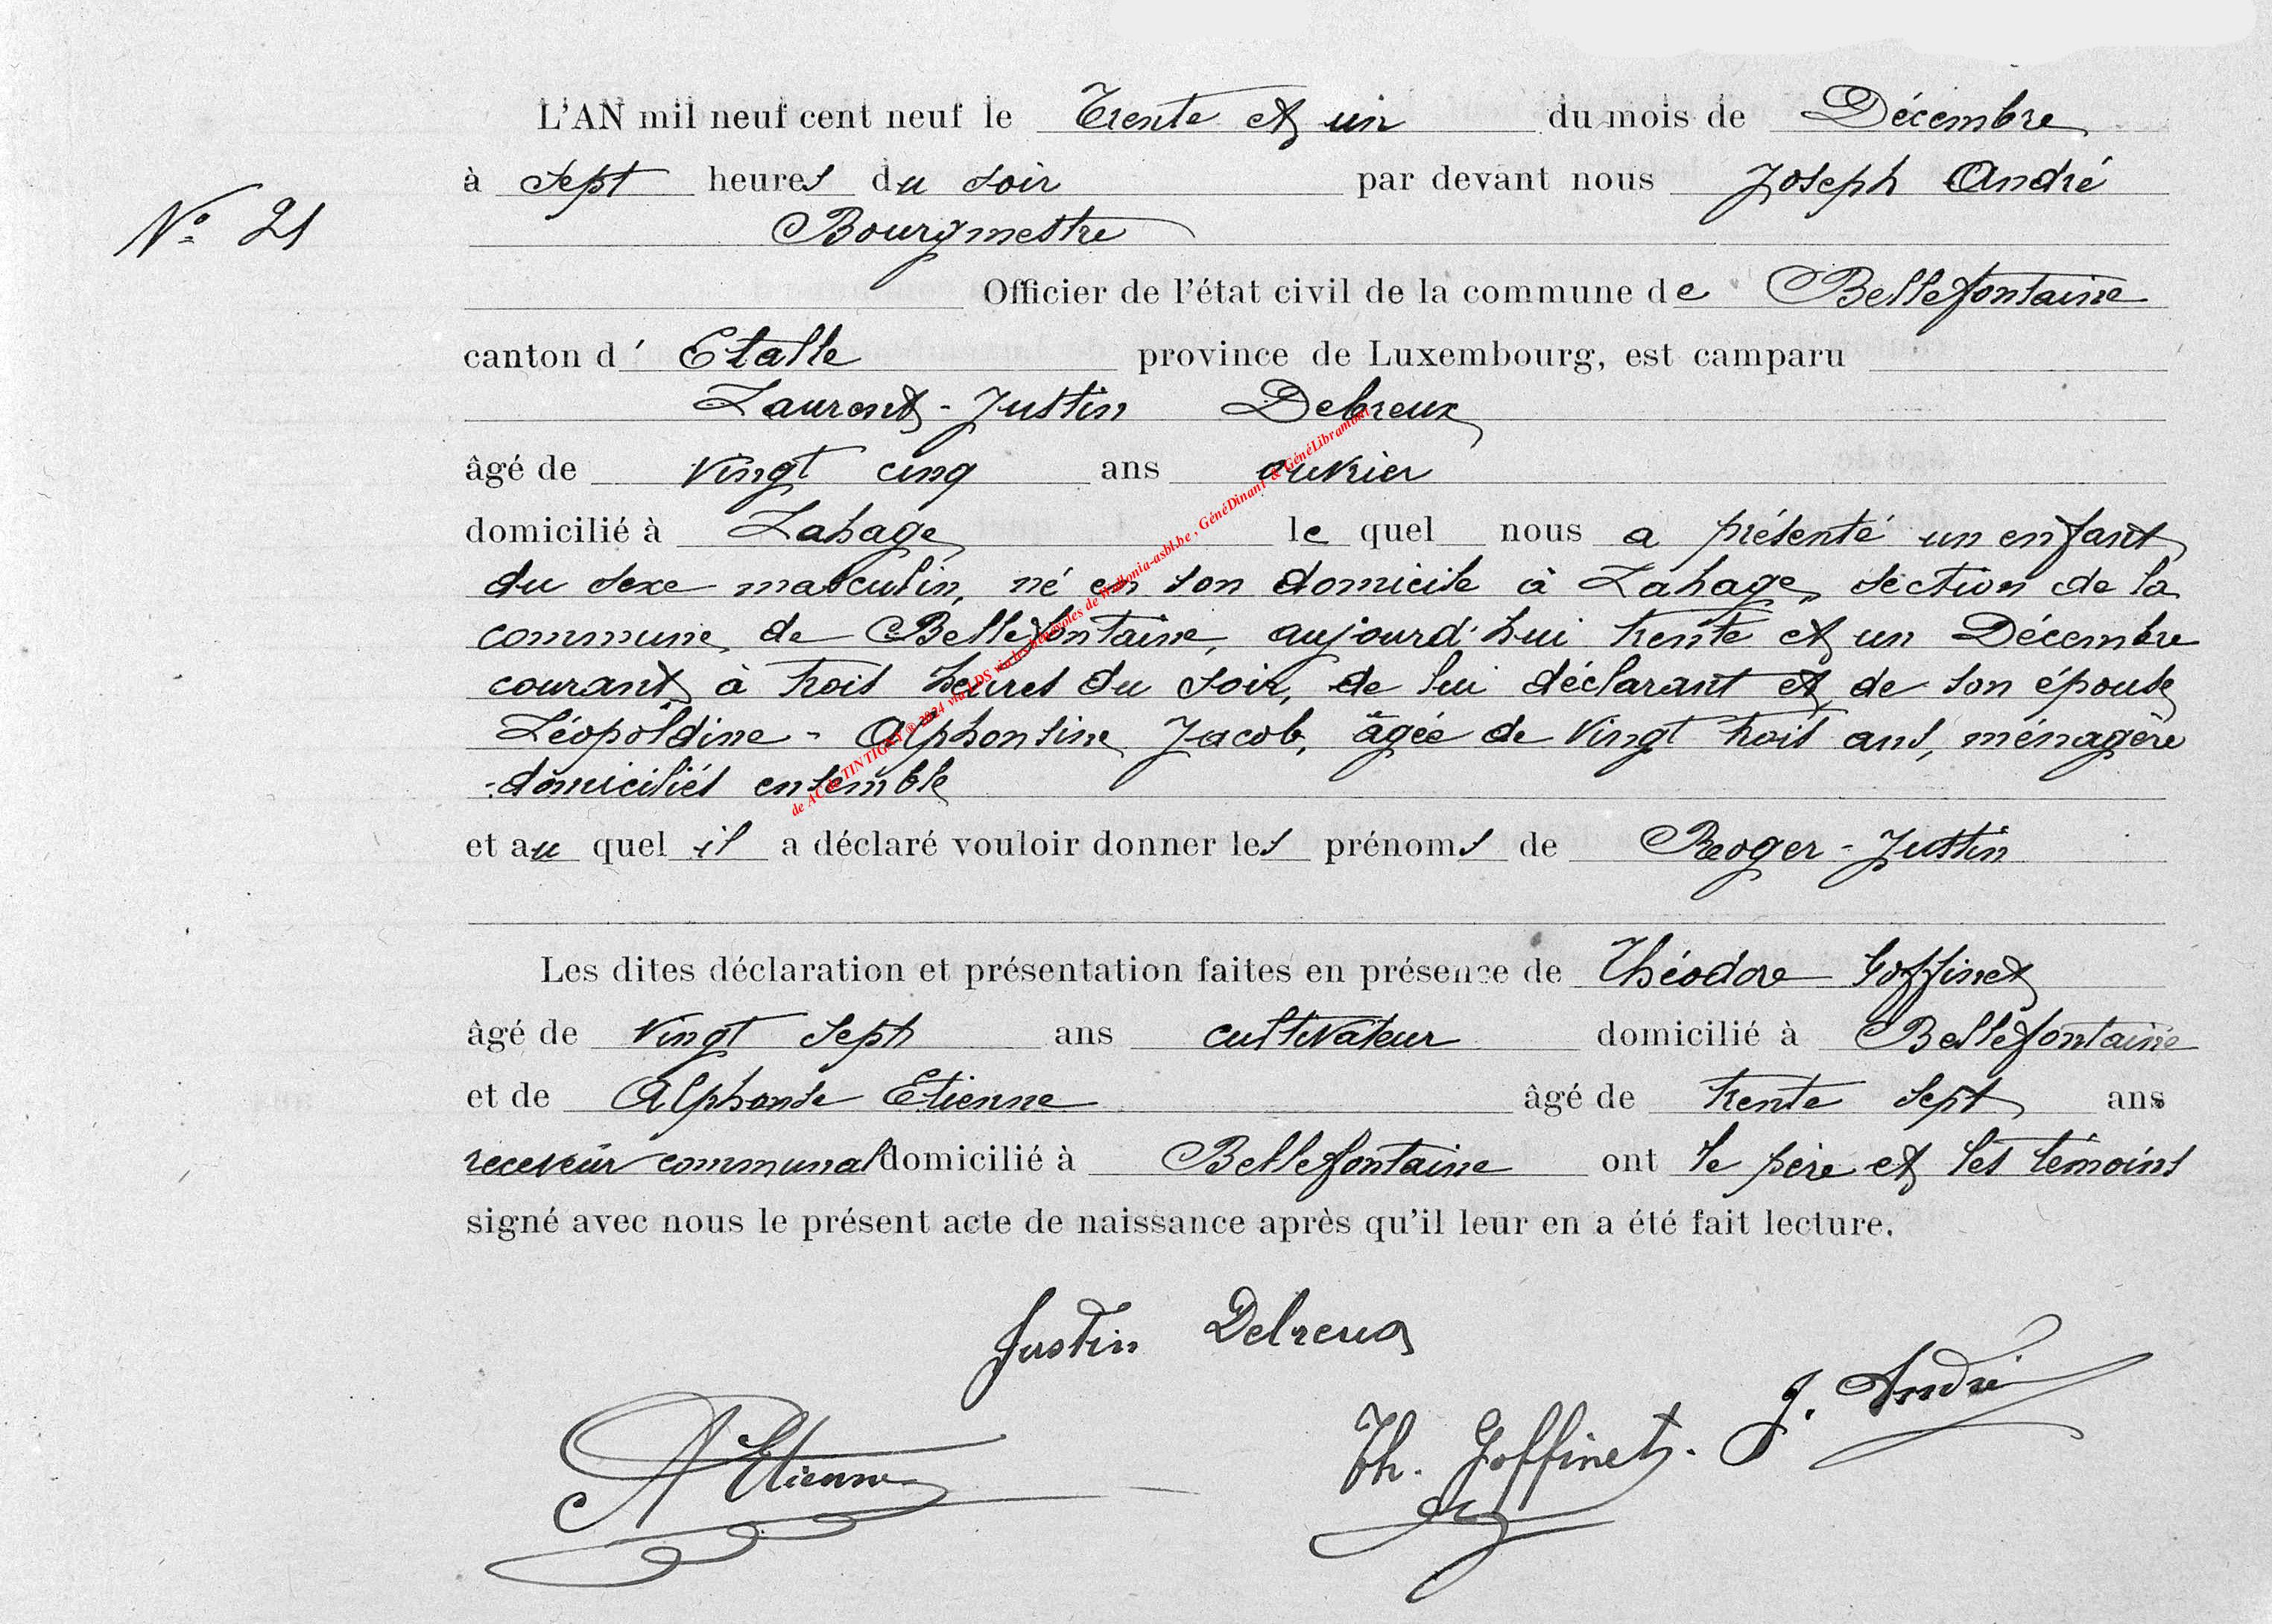 L'AN mil neuf cent neuf le Trente et un du mois de Décembre
à sept heures du soir par devant nous Joseph André
N° 21
Bourgmestre
Officier de l'état civil de la commune de Bellefontaine
canton d' Etalle province de Luxembourg, est camparu
Laurent-Justin Debreux
âgé de vingt cinq ans ouvrier
domicilié à Lahage le quel nous a présenté un enfant
du sexe masculin, né en son domicile à Lahage, section de la
commune de Bellefontaine, aujourd'hui trente et un Décembre
courant à trois heures du soir, de lui déclarant et de son épouse
Léopoldine-Alphonsine Jacob, âgée de vingt trois ans, ménagère
domiciliés ensemble
et au quel il a déclaré vouloir donner les prénoms de Roger-Justin
Les dites déclaration et présentation faites en présence de Théodore Goffinet
âgé de vingt sept ans cultivateur domicilié à Bellefontaine
et de Alphonse Etienne âgé de trente sept ans
receveur communal domicilié à Bellefontaine ont le père et les témoins
signé avec nous le présent acte de naissance après qu'il leur en a été fait lecture.
Justin Debreux
J. André
A Etienne
Th. Goffinet.
de AC de TINTIGNY ® 2024 via LDS via les bénévoles de Wallonia-asbl.be , GénéDinant & GénéLibramont